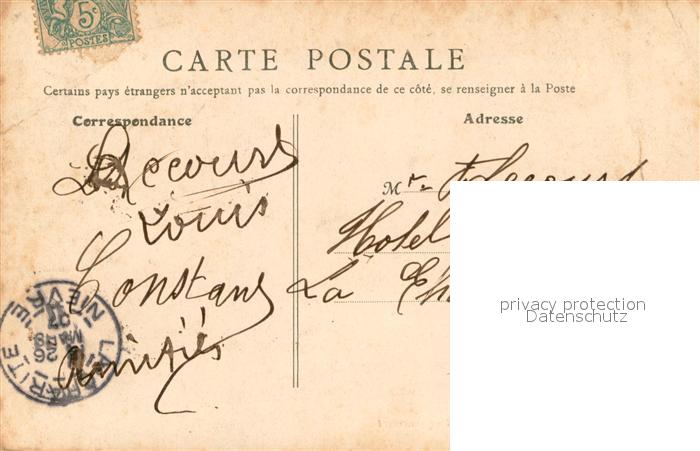 5c
POSTES
CARTE POSTALE
Certains pays étrangers n'acceptant pas la correspondance de ce côté, se renseigner à la Poste
Correspondance
Lecours
Louis
Constans
Amitiés
Adresse
Mr. Lecours
Hotel
La Ch
LA CHARITÉ
26
MARS
07
NIEVRE
privacy protection
Datenschutz